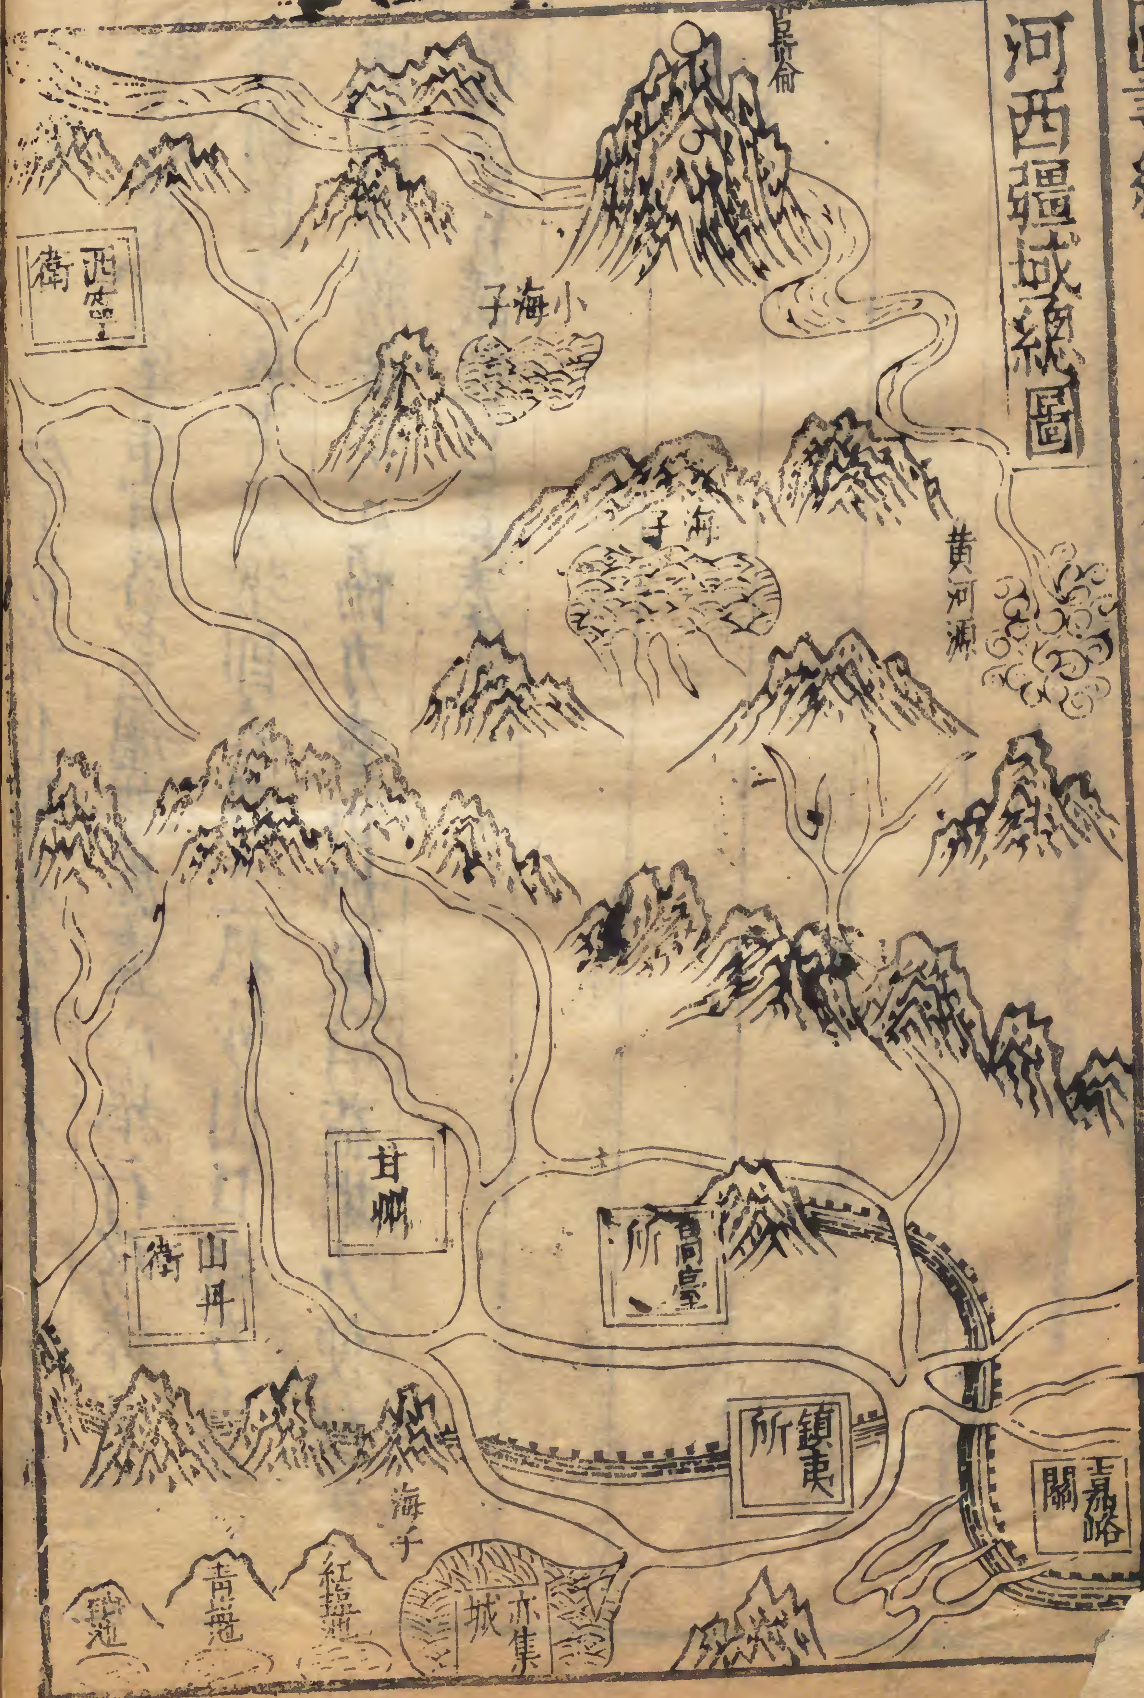 河西疆域總圖
崑崙
黃河源
小海子
海子
西寧衛
甘州
山丹衛
高臺所
鎮夷所
嘉峪關
海子
亦集城
紅鹽池
青鹽池